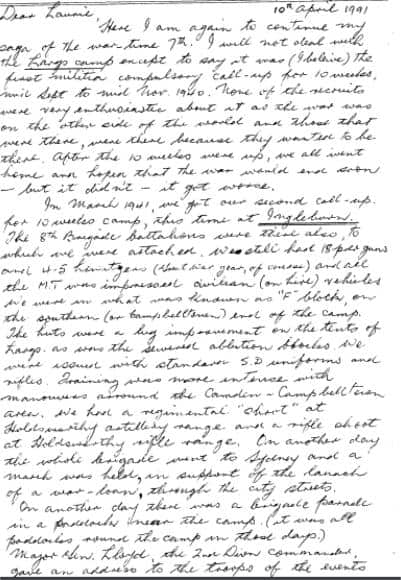 Dear Laurie 10th April 1991
Here I am again to continue my
saga of the war-time 7th. I will not deal with
the Largs camp except to say it was (I believe) the
first militia compulsory call-up for 10 weeks,
mid Sept to mid Nov. 1940. None of the recruits
were very enthusiastic about it as the war was
on the other side of the world and those that
were there, were there because they wanted to be
there. After the 10 weeks were up, we all went
home and hoped that the war would end soon
– but it didn't – it got worse.
In March 1941, we got our second call-up.
for 10 weeks camp, this time at Ingleburn.
The 8th Brigade Battalions were there also, to
which we were attached. We still had 18-pdr guns
and 4-5 howitzers ( gear, of course) and all
the M.T was impressed civilian (on hire) vehicles
We were in what was known as "F" block, on
the southern (or Campbelltown) end of the camp.
The huts were a big improvement on the tents of
Largs. as was the sewered ablution blocks. We
were issued with standard S.D uniforms and
rifles. Training was more intense with
manouvres arround the Camden-Campbelltown
area. We had a regimental "shoot" at
Holdsworthy artillery range and a rifle shoot
at Holdsworthy rifle range. On another day
the whole brigade went to Sydney and a
march was held, in support of the launch
of a war-loan, through the city streets.
On another day there was a brigade parade
in a paddock near the camp. (it was all
paddocks round the camp in those days.)
Major Gen. Lloyd, the 2nd Divn commander,
gave an address to the troops of the events